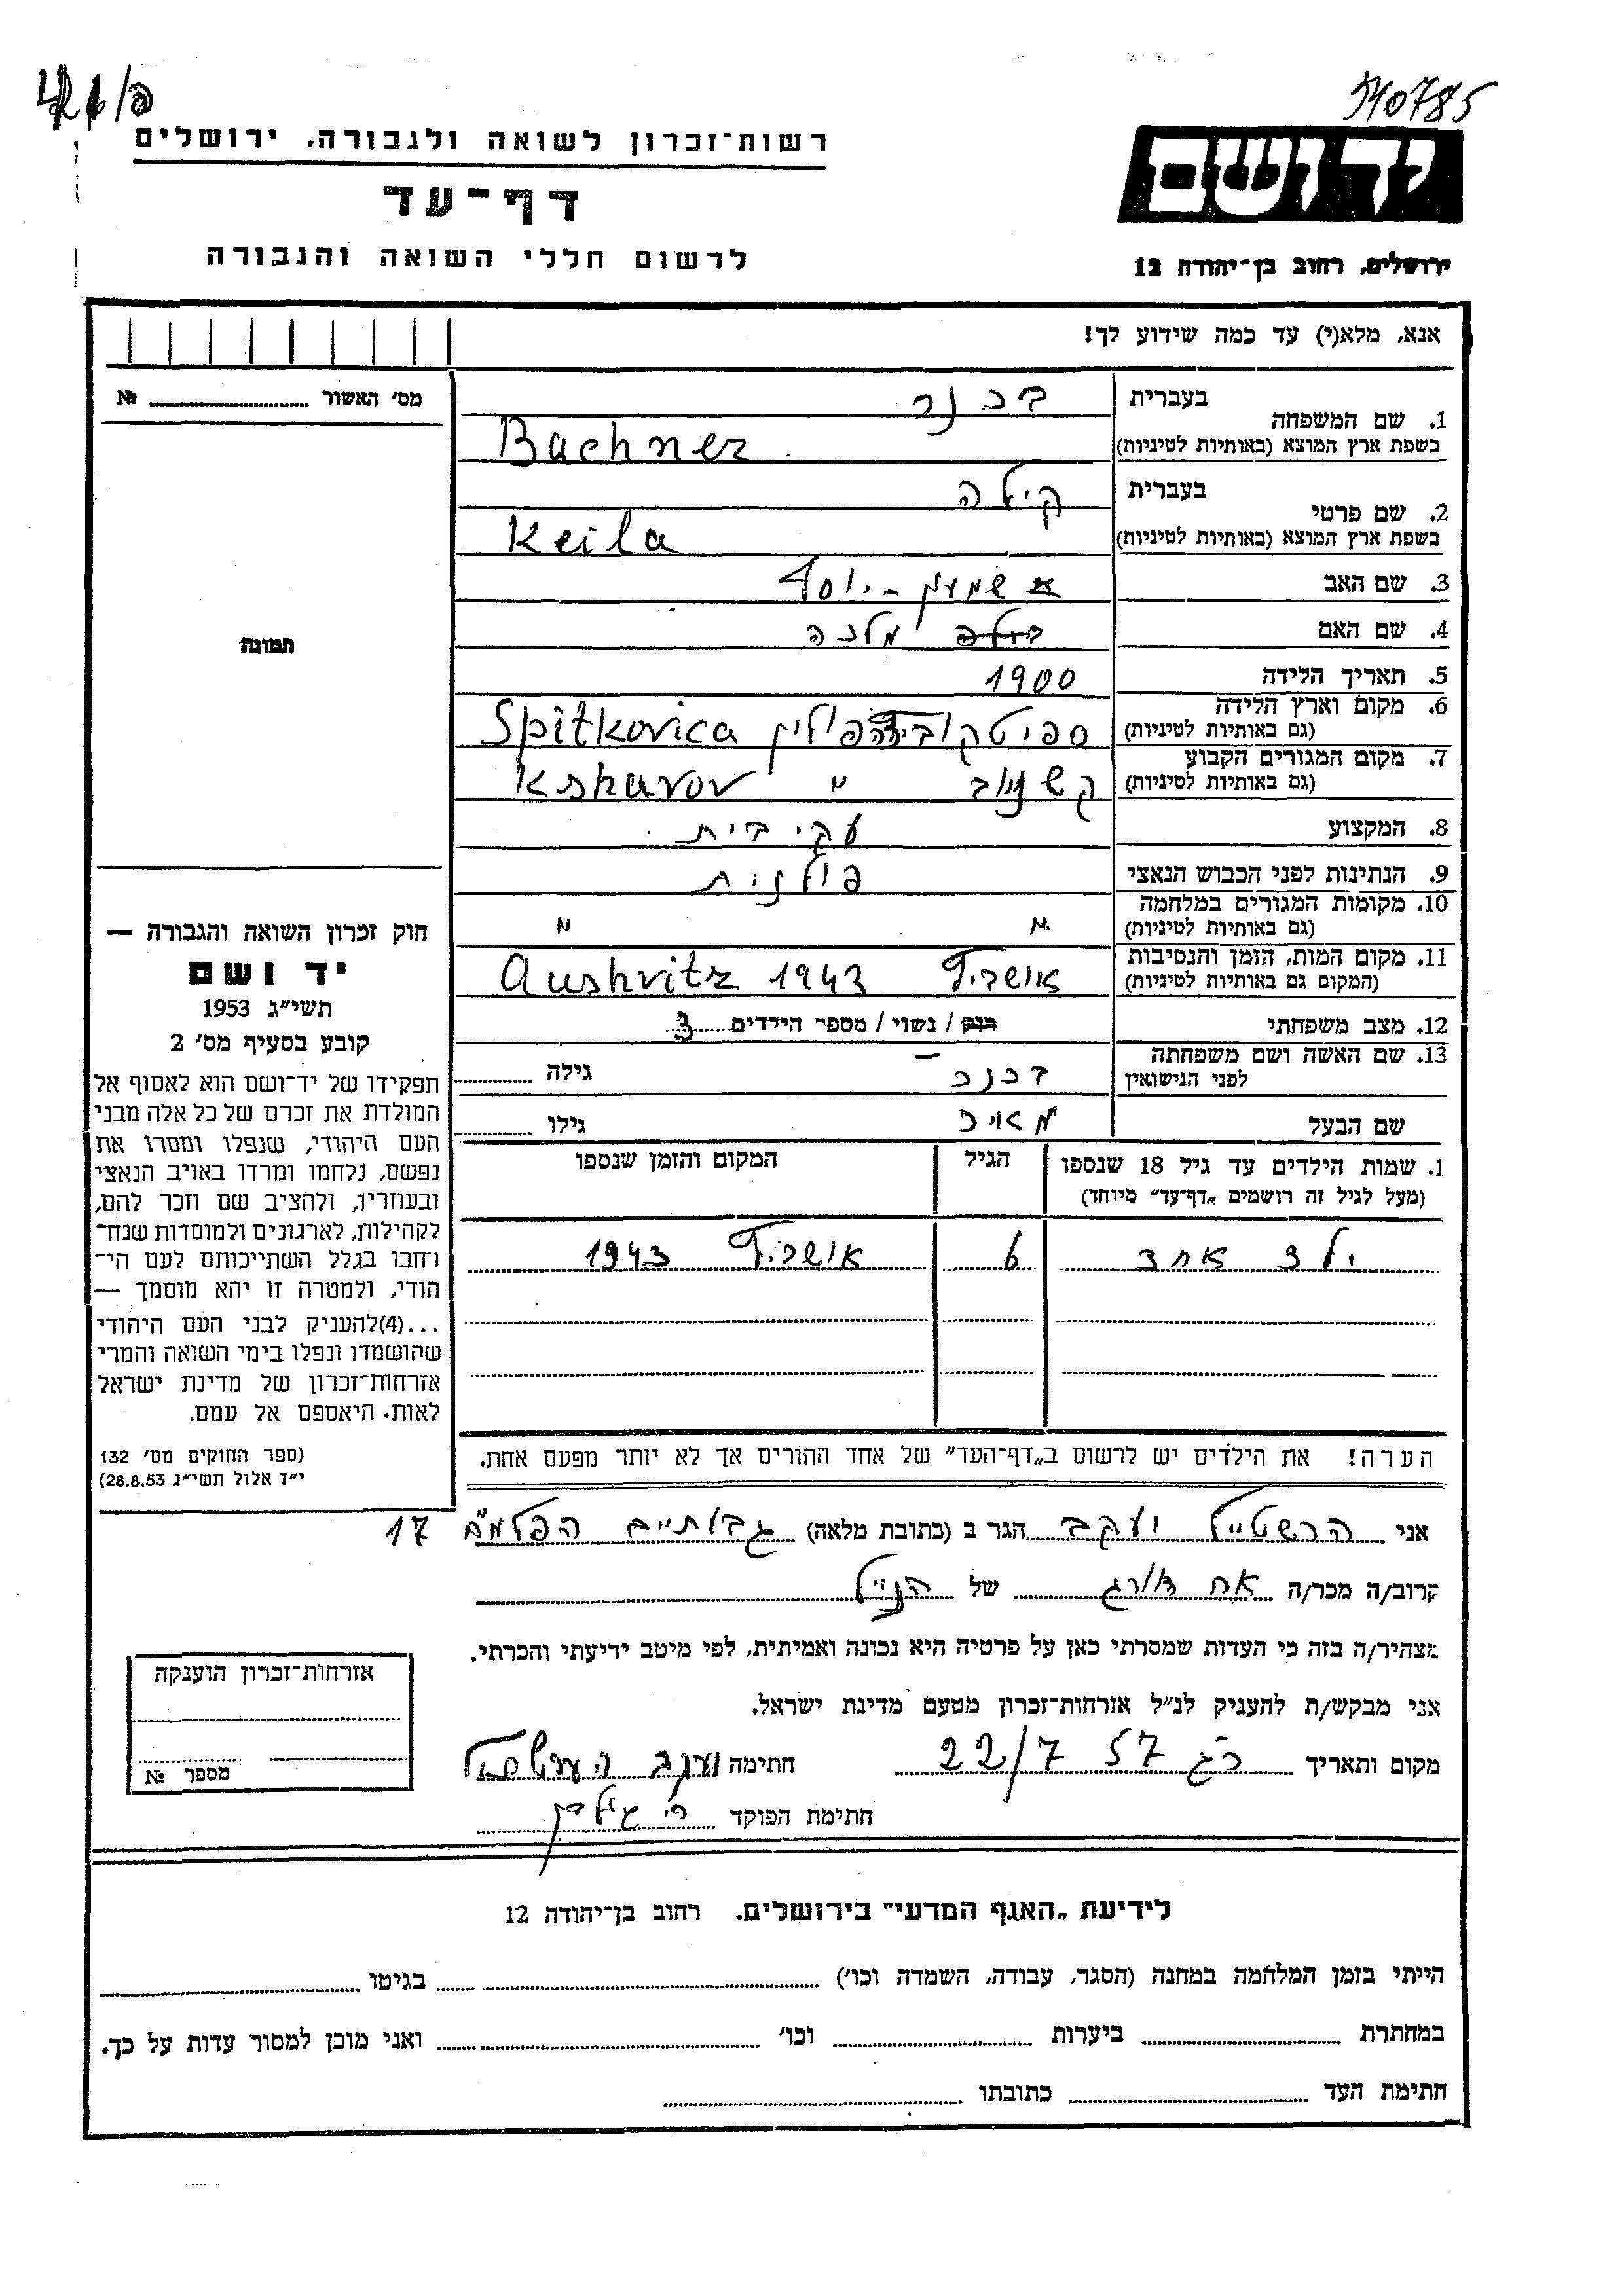 540785
רשות־זכרון לשואה ולגבורה, ירושלים
יד ושם
דף־עד
ירושלים, רחוב בן־יהודה 12
לרשום חללי השואה והגבורה
אנא, מלא(י) עד כמה שידוע לך!
מס׳ האשור № 
1. שם המשפחה
בעברית בכנר
בשפת ארץ המוצא (באותיות לטיניות) Bachner
2. שם פרטי
בעברית קילה
בשפת ארץ המוצא (באותיות לטיניות) Keila
3. שם האב שמעון - יוסף
4. שם האם מלכה
תמונה
5. תאריך הלידה 1900
6. מקום וארץ הלידה
(גם באותיות לטיניות) פולין Spitkovica
7. מקום המגורים הקבוע
(גם באותיות לטיניות) Kshanov
8. המקצוע עקי בית
9. הנתינות לפני הכבוש הנאצי פולנית
10. מקומות המגורים במלחמה
(גם באותיות לטיניות) " "
11. מקום המות, הזמן והנסיבות
(המקום גם באותיות לטיניות) אושביץ 1943 Aushvitz
12. מצב משפחתי רווק / נשוי / מספר הילדים 3
13. שם האשה ושם משפחתה
לפני הנישואין בכנר גילה
שם הבעל מאיר גילו
1. שמות הילדים עד גיל 18 שנספו
(מעל לגיל זה רושמים „דף־עד״ מיוחד)
הגיל
המקום והזמן שנספו
ילד אחד 6 אושביץ 1943
הערה! את הילדים יש לרשום ב„דף־העד״ של אחד ההורים אך לא יותר מפעם אחת.
חוק זכרון השואה והגבורה —
יד ושם
תשי״ג 1953
קובע בסעיף מס׳ 2
תפקידו של יד־ושם הוא לאסוף אל
המולדת את זכרם של כל אלה מבני
העם היהודי, שנפלו ומסרו את
נפשם, נלחמו ומרדו באויב הנאצי
ובעוזריו, ולהציב שם וזכר להם,
לקהילות, לארגונים ולמוסדות שנח־
רבו בגלל השתייכותם לעם הי־
הודי, ולמטרה זו יהא מוסמך —
...(4) להעניק לבני העם היהודי
שהושמדו ונפלו בימי השואה והמרי
אזרחות־זכרון של מדינת ישראל
לאות. היאספם אל עמם.
(ספר החוקים מס׳ 132
י״ד אלול תשי״ג 28.8.53)
אני יעקב הגר ב (כתובת מלאה) גבעתיים הפלמ״ח 17
קרוב/ה מכר/ה אח של הנ״ל
מצהיר/ה בזה כי העדות שמסרתי כאן על פרטיה היא נכונה ואמיתית, לפי מיטב ידיעתי והכרתי.
אני מבקש/ת להעניק לנ״ל אזרחות־זכרון מטעם מדינת ישראל.
מקום ותאריך ר״ג 22/7 57 חתימה יעקב
חתימת הפוקד
אזרחות־זכרון הוענקה
מספר №
לידיעת „האגף המדעי״ בירושלים, רחוב בן־יהודה 12
הייתי בזמן המלחמה במחנה (הסגר, עבודה, השמדה וכו׳) בגיטו
במחתרת ביערות וכו׳ ואני מוכן למסור עדות על כך.
חתימת העד כתובתו